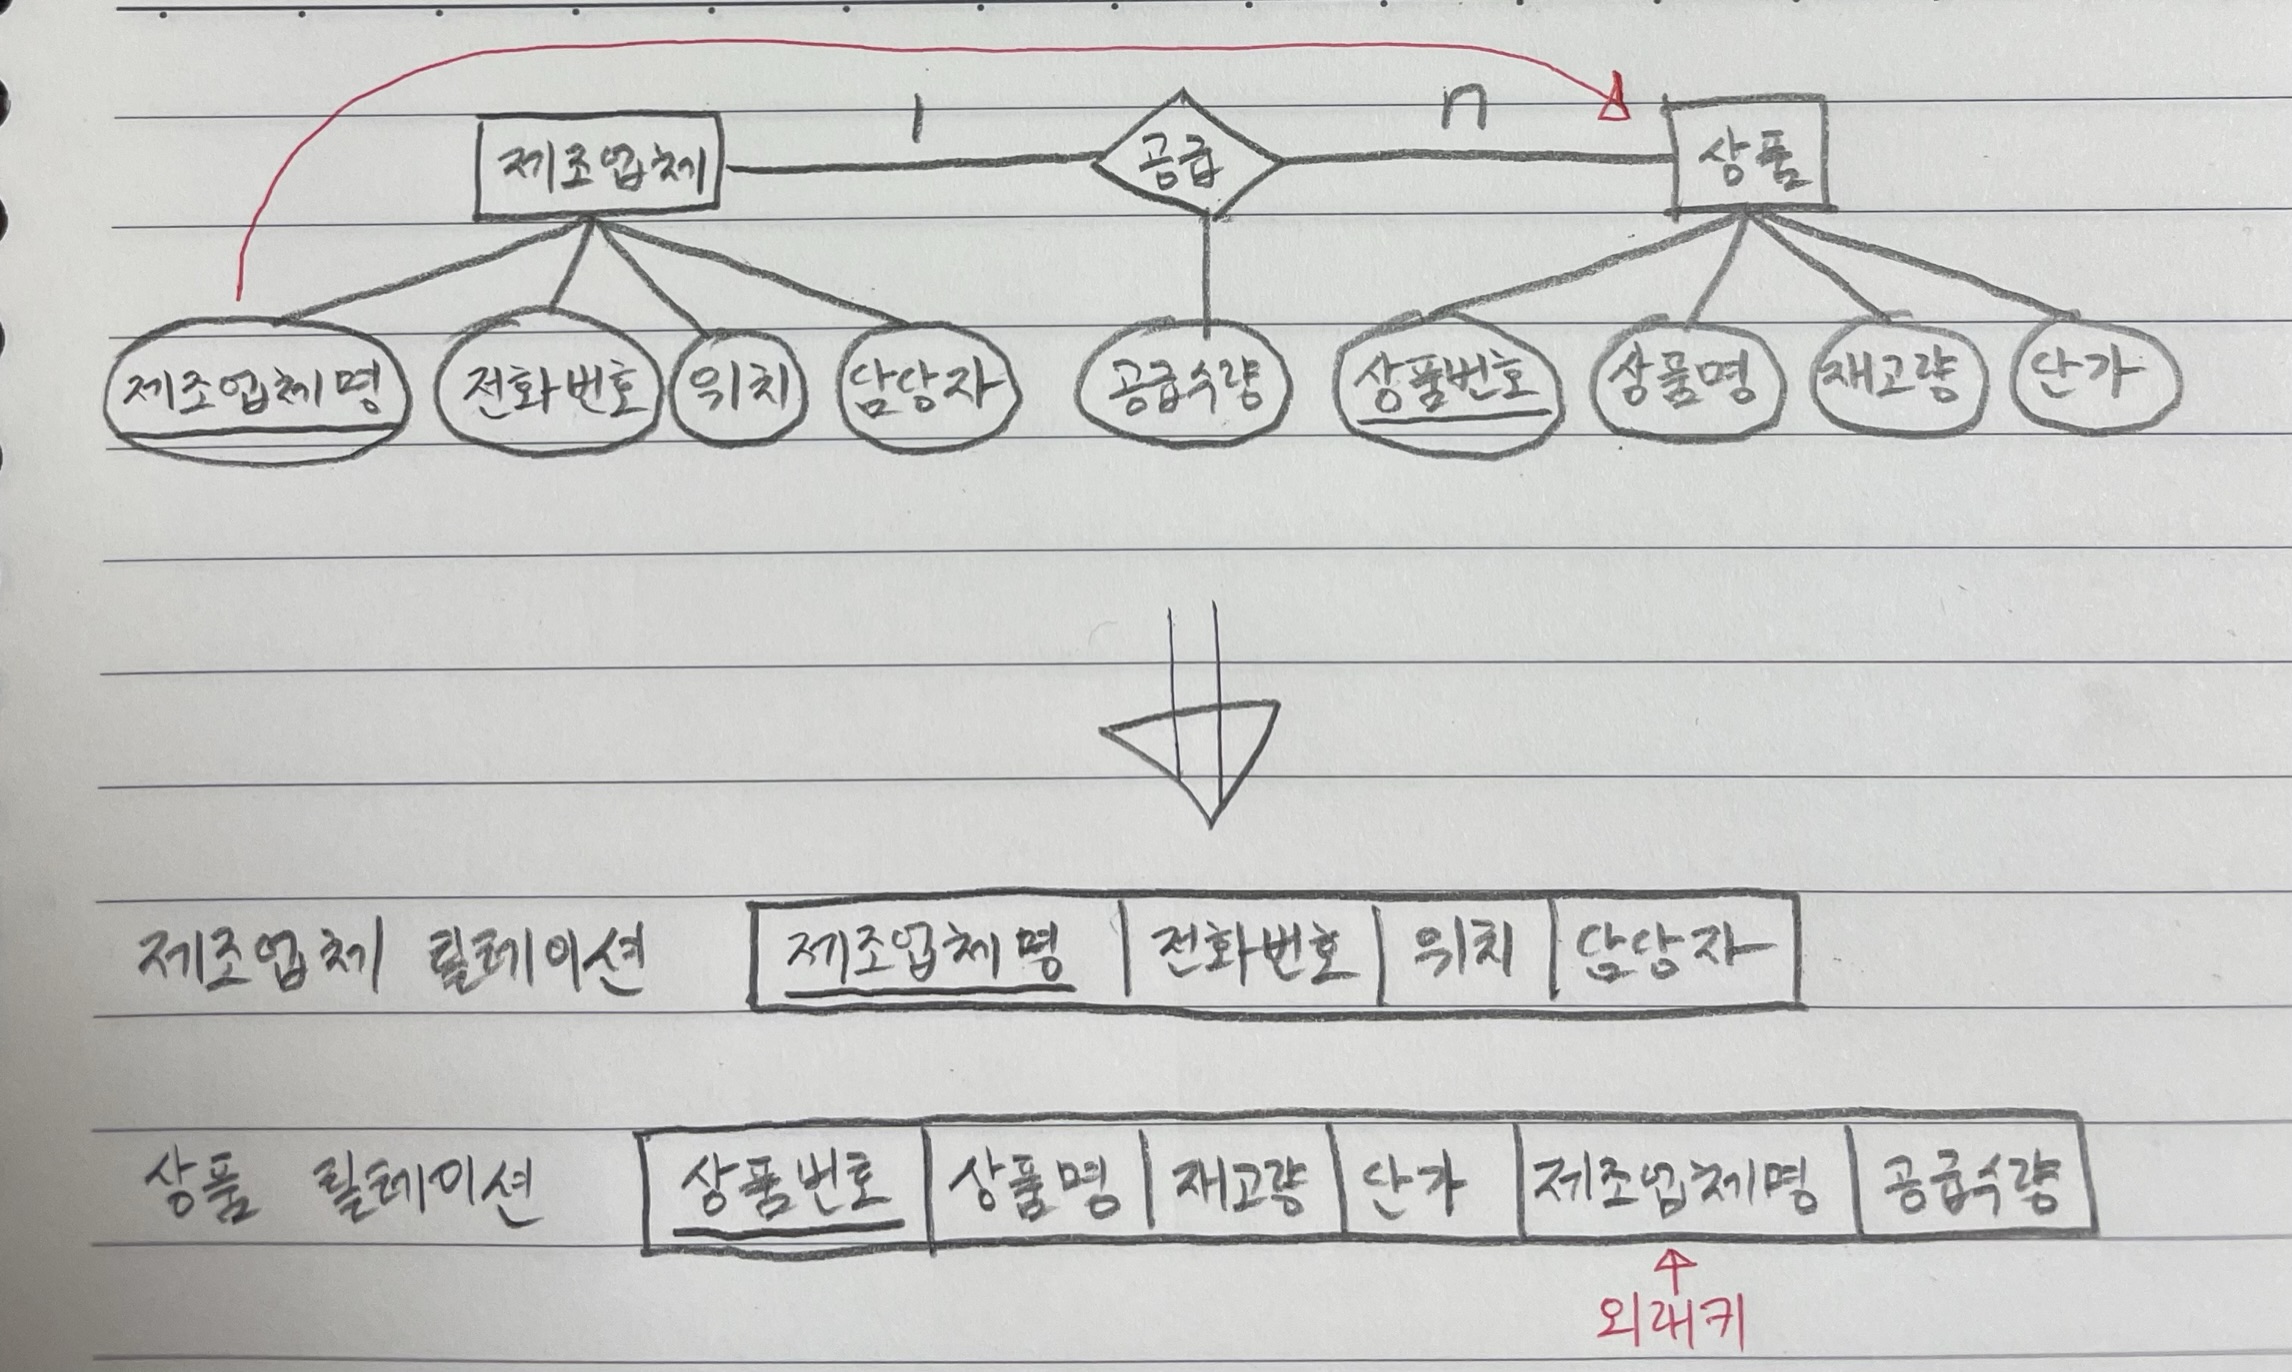 1 n
제조업체 공급 상품
제조업체명 전화번호 위치 담당자 공급수량 상품번호 상품명 재고량 단가
제조업체 릴레이션 제조업체명 전화번호 위치 담당자
상품 릴레이션 상품번호 상품명 재고량 단가 제조업체명 공급수량
외래키